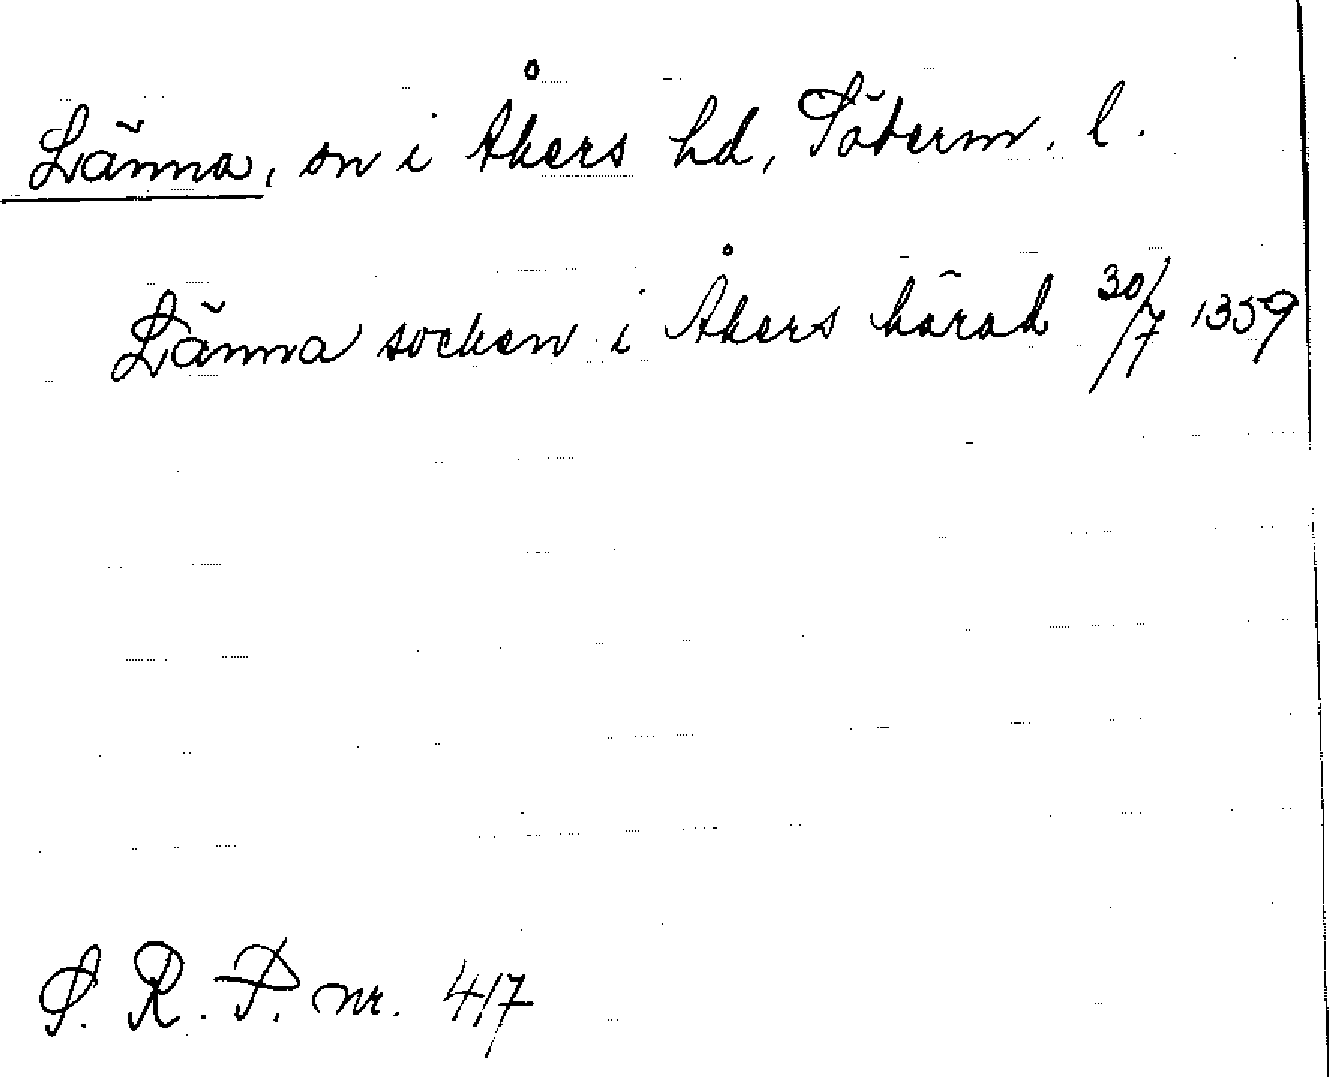 Länna, sn i Åkers hd, Söderm. l.
Länna socken i Åkers härad 30/7 1359
S. R. P. nr. 417